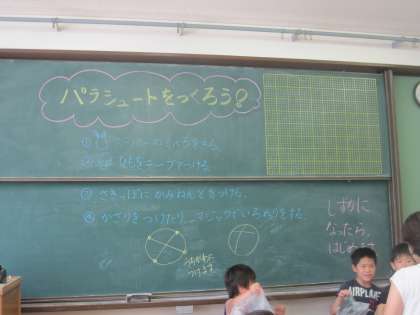 パラシュートをつくろう?
①
② ひもをテープでつける。
③ さきっぽに かみねんどをつける。
④ かざりをつけたり、マジックでいろぬりをする。
うちがわに
つけます。
しずかに
なったら、
はじめます
AIRPLANE